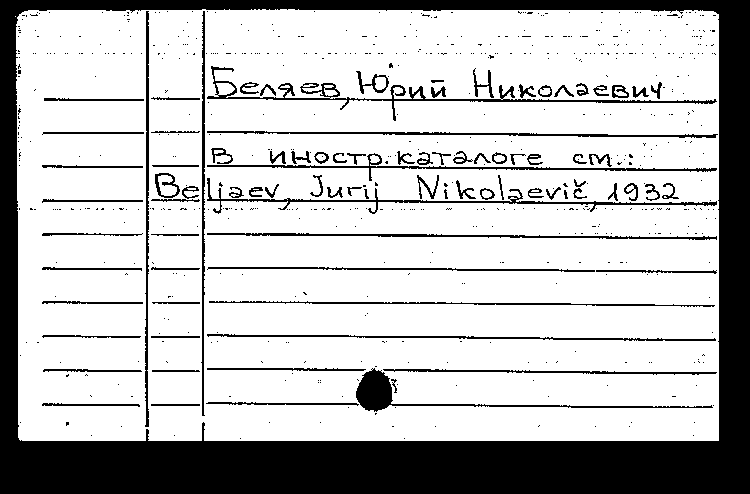 Беляев, Юрий Николаевич
В иностр. каталоге см.:
Beljaev, Jurij Nikolaevič, 1932